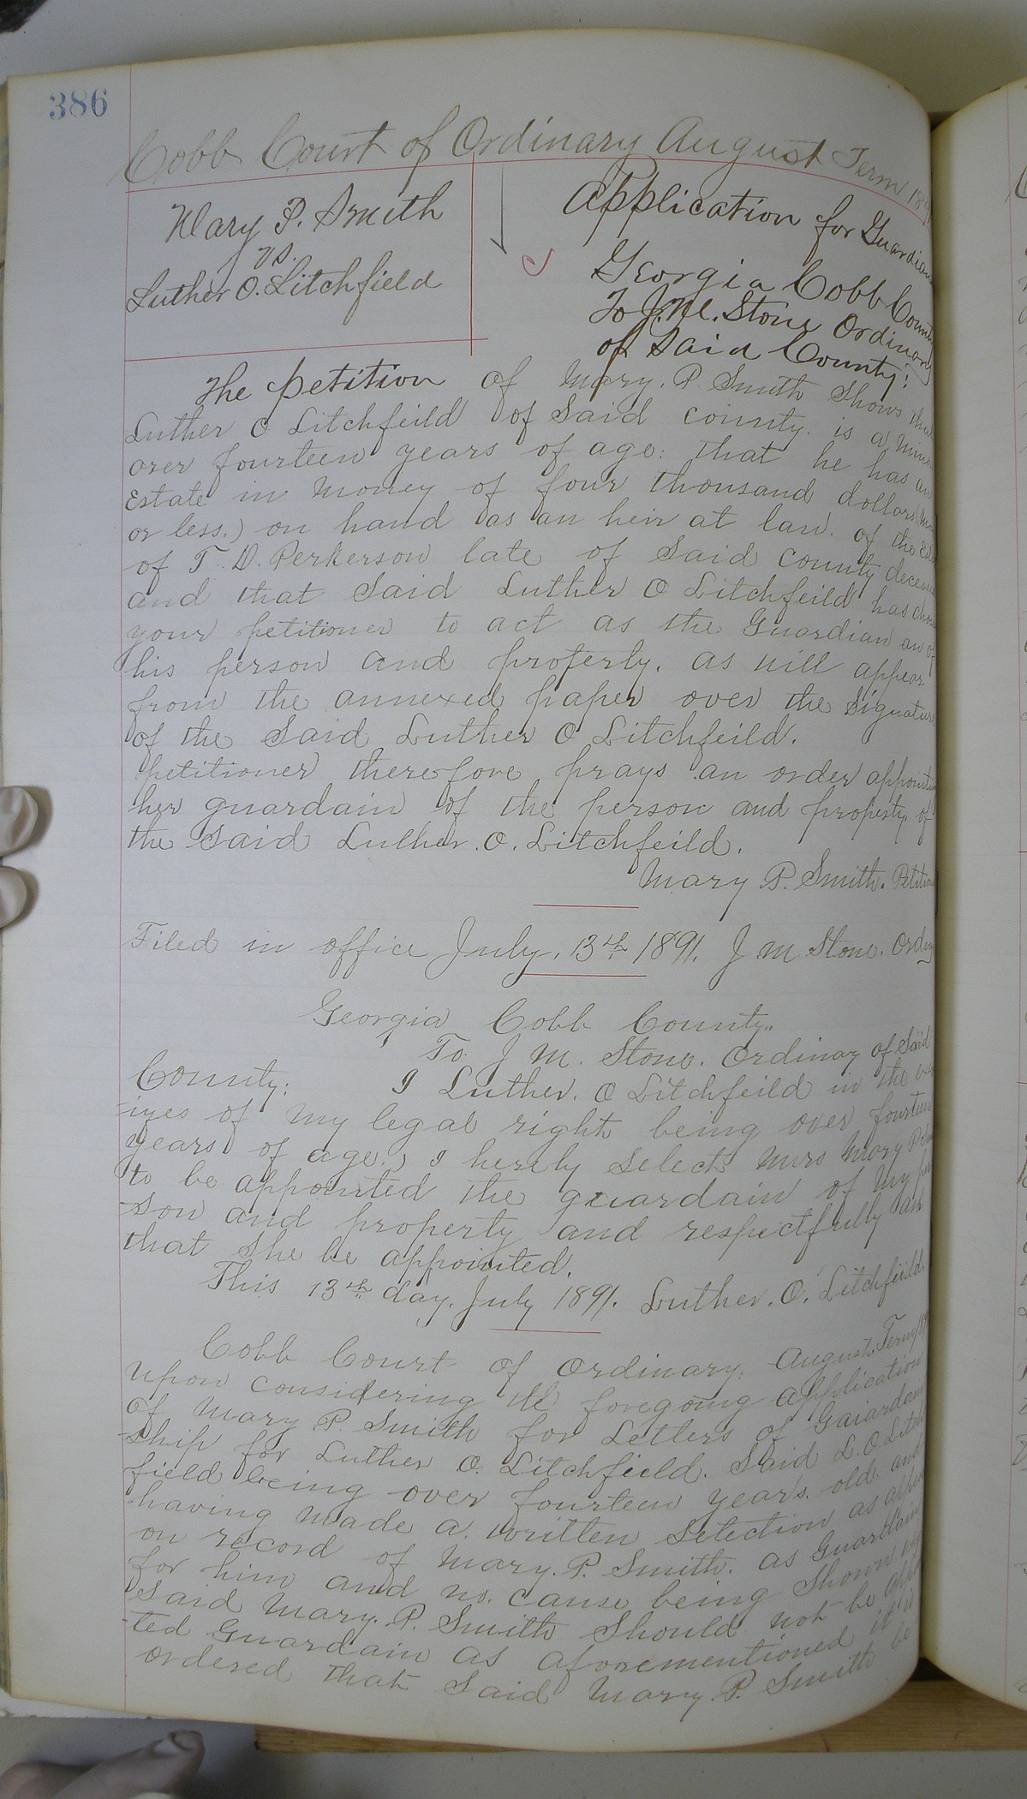 386
Cobb Court of Ordinary August Term
Mary P. Smith
vs.
Luther O. Litchfield
Application for Guardian
Georgia Cobb County
To J. M. Stone Ordinary
of Said County:
The petition of Mary. P. Smith Shows that
Luther O Litchfeild of Said county. is a minor
over fourteen years of age: that he has an
Estate in Money of four thousand dollars
or less.) on hand as an heir at law. of the
of T. D. Perkerson late of Said County
and that Said Luther O Litchfeild has
your petitioner to act as the Guardian
his person and property. as will appear
from the annexed paper over the Signature
of the Said Luther O Litchfeild.
petitioner therefore prays an order
her guardain of the person and property of
the Said Luther. O. Litchfeild.
Mary P. Smith.
Filed in office July. 13th 1891. J M Stone.
Georgia Cobb County.
To J M. Stone. Ordinary of Said
County: I Luther. O Litchfeild in the
-izes of my legal right being over fourteen
years of age.) I hereby Selects Mrs Mary
to be appointed the guardain of My
-son and property and respectfully ask
that She be appointed.
This 13th day. July 1891. Luther. O. Litchfeild
Cobb Court of Ordinary. August. Term
upon considering the foregoing application
of Mary P. Smith for Letters of Gaiardian
-ship for Luther O. Litchfield. Said L. O. Litch
field being over fourteen years old and
-having Made a. written Selection as
on record of Mary. P. Smith. as Guardian
for him and no. cause being Shown
Said Mary. P. Smith Should not be
-ted Guardain as aforementioned it is
ordered that Said Mary. P. Smith be